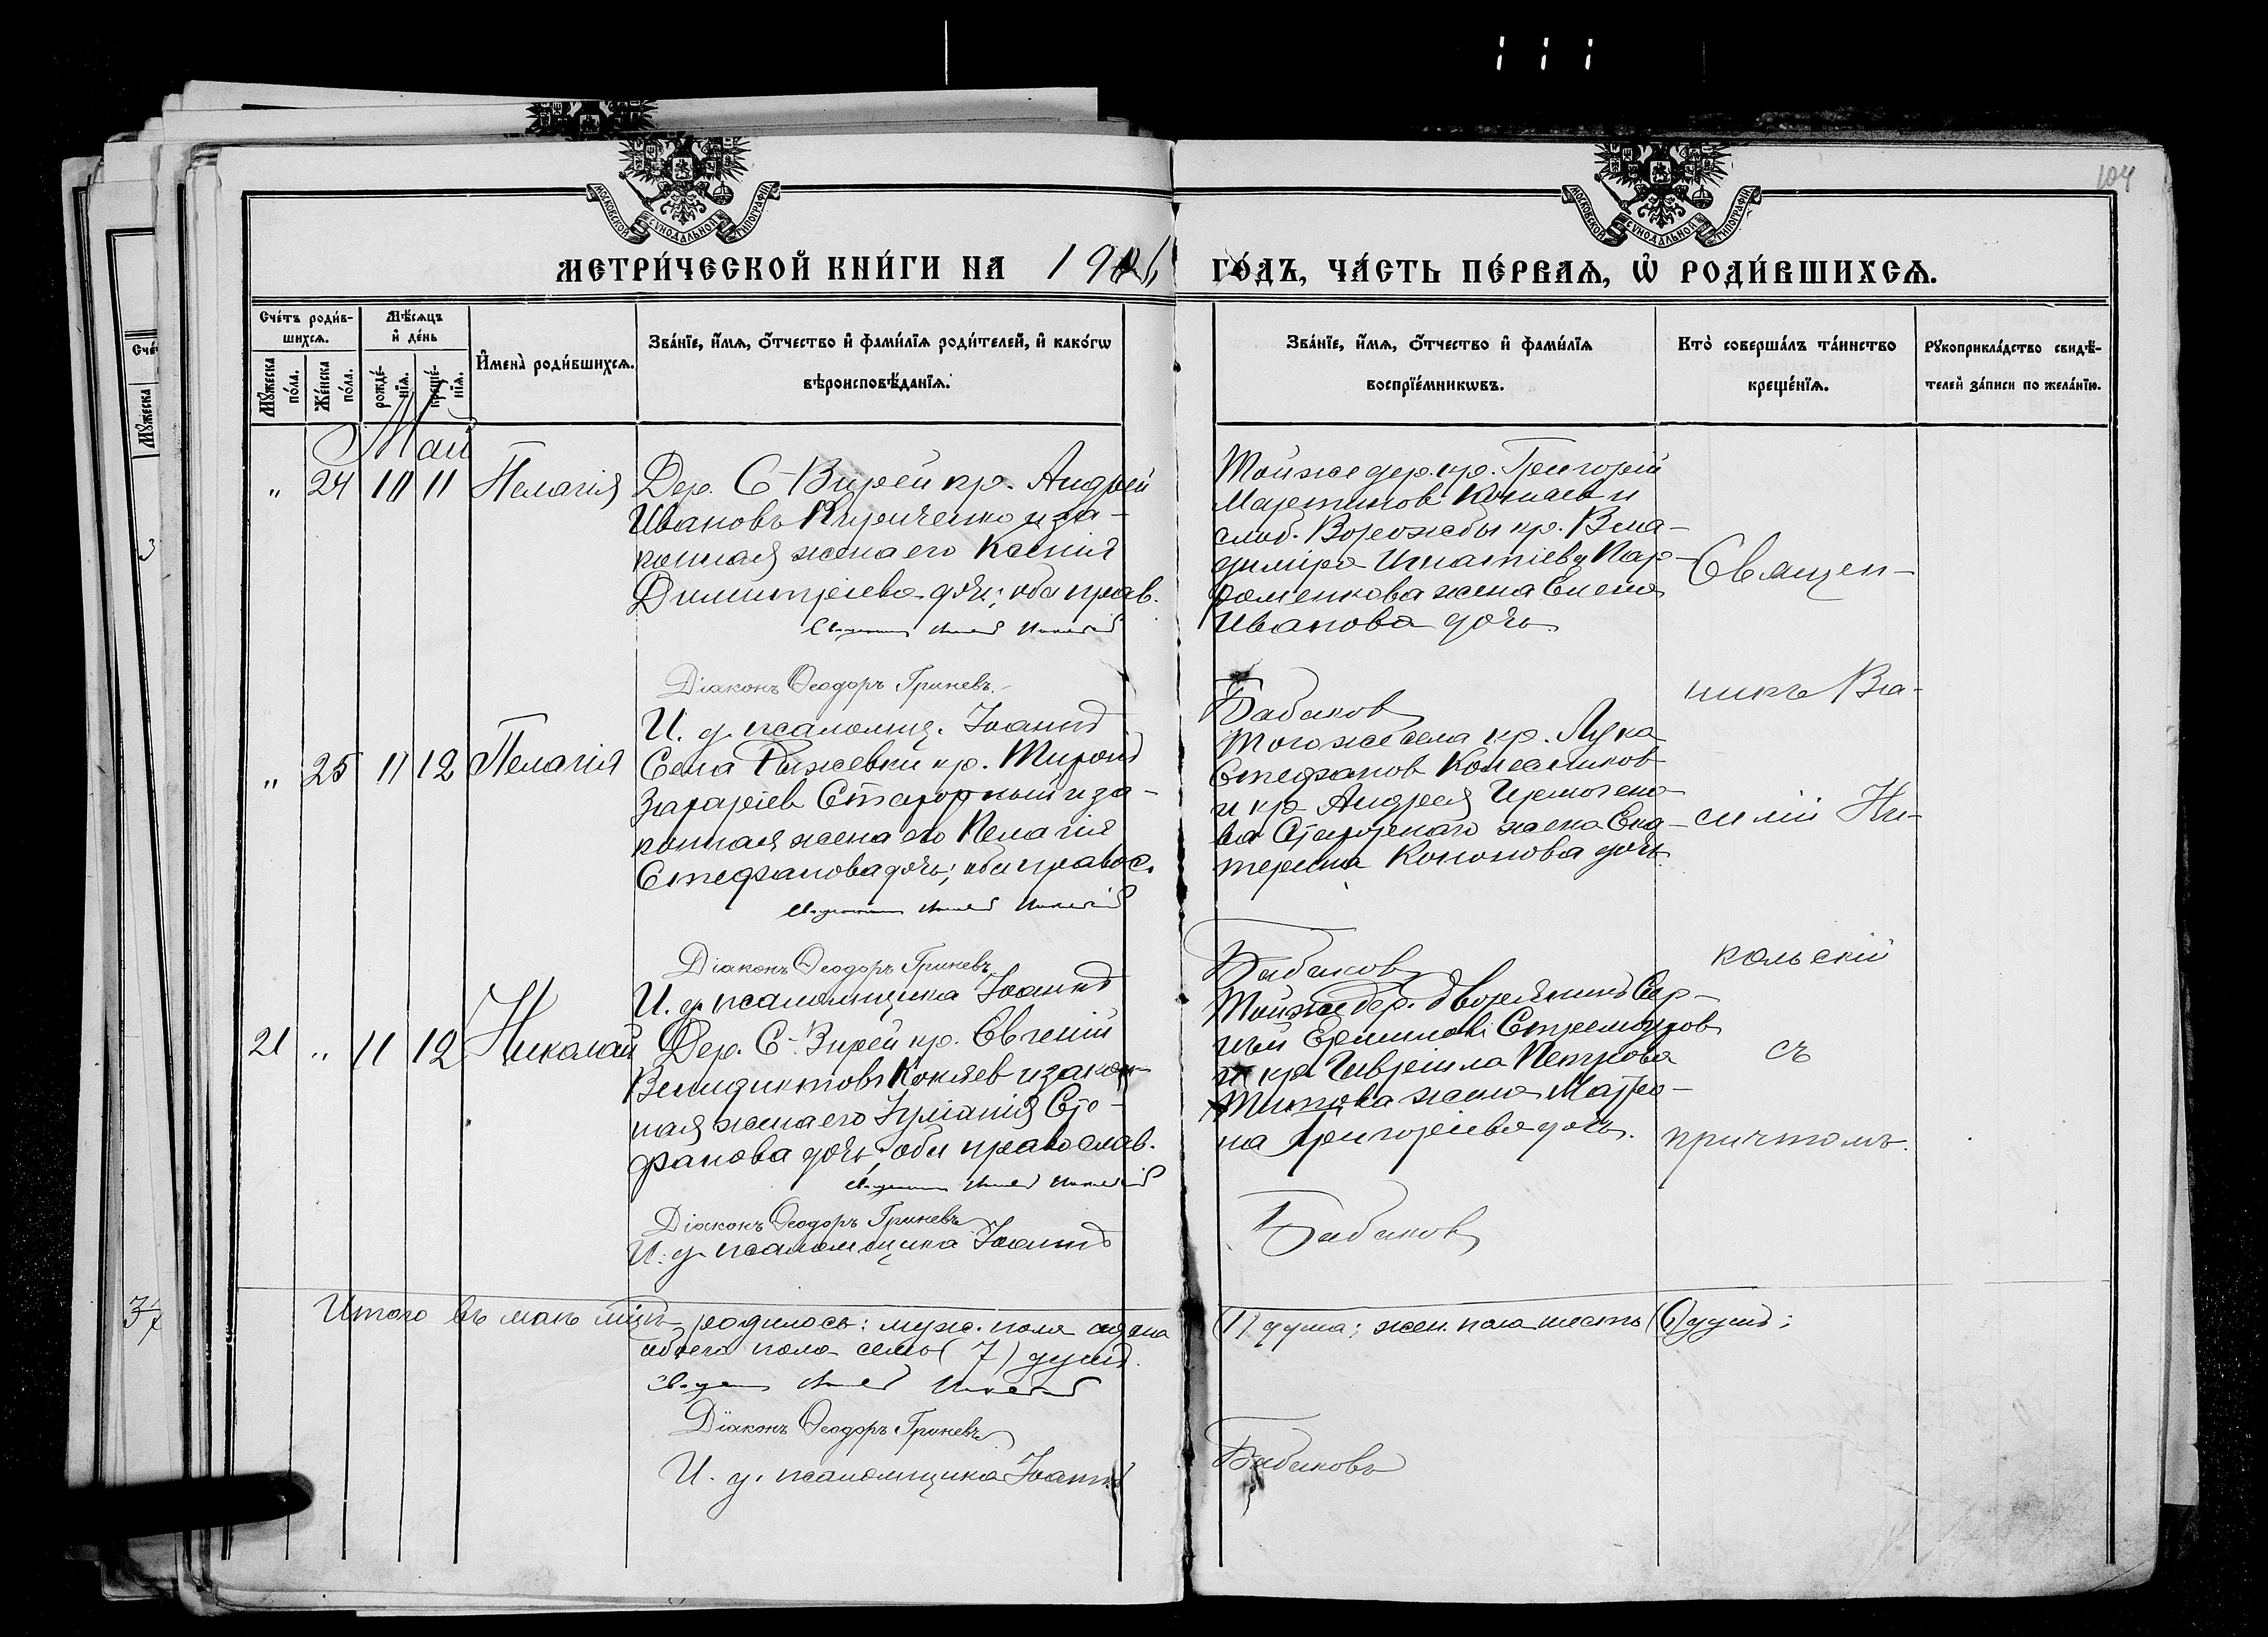 104
МОСКОВСКОЙ СѴНОДАЛЬНОЙ ТИПОГРАФІИ
МОСКОВСКОЙ СѴНОДАЛЬНОЙ ТИПОГРАФІИ
МЕТРИ́ЧЕСКОЙ КНИ́ГИ НА 190
ГО́ДЪ, ЧА́СТЬ ПЕ́РВАѦ, Ѡ҆ РОДИ́ВШИХСѦ.
Сче́тъ роди́в-
шихсѧ.
Мꙋ́жеска по́ла.
Же́нска по́ла.
Мѣ́сѧцъ
и҆ де́нь
рожде́-
нїѧ.
креще́-
нїѧ.
И҆мена̀ роди́вшихсѧ.
Зва́нїе, и҆́мѧ, ѻ҆́тчество и҆ фами́лїѧ роди́телей, и҆ како́гѡ
вѣроисповѣ́данїѧ.
Зва́нїе, и҆́мѧ, ѻ҆́тчество и҆ фами́лїѧ
воспрїе́мникѡвъ.
Кто̀ соверша́лъ та́инство
креще́нїѧ.
Рꙋкоприкла́дство свидѣ́-
телей за́писи по жела́нїю.
Май
" 24 10 11 Пелагія
Дер. С-Вирей кр. Андрей
Ивановъ Кириченко и за-
конная жена его Ксенія
Димитріева дочь; оба прав.
Діаконъ Ѳеодоръ Гриневъ
И. д. псаломщ. Іоаннъ
Тойже дер. кр. Григорій
Мартинов Коняев и
слоб. Ворожбы кр. Вла-
диміра Игнатіева Пар-
фоменкова жена Елена
Иванова дочь.
Бабаков
Священ-
никъ Ва-
силій Ни-
кольскій
съ
причтомъ.
" 25 11 12 Пелагія
Села Рыжевки кр. Миронъ
Захаріев Старорный и за-
конная жена его Пелагія
Стефанова дочь; оба правос.
Діаконъ Ѳеодоръ Гриневъ
И. д. псаломщика Іоаннъ
Тогоже села кр. Лука
Стефанов Колесников
и кр. Андрея
жена Ека-
терина Кононова дочь
Бабаков
21 " 11 12 Николай
Дер. С-Вирей кр. Евгеній
Венидиктовъ Коняев и закон-
ная жена его Іуліанія Сте-
фанова дочь; оба православ.
Діаконъ Ѳеодоръ Гриневъ
И. д. псаломщика Іоаннъ
Тойже дер. дворянинъ Сер-
гій Стремоухов
и кр. Гавріила Петрова
Титова жена Матро-
на Григоріева дочь.
Бабаков
Итого въ маѣ м-цѣ родилось: муж. пола одна (1) душа; жен. пола шесть (6) душъ;
обоего пола семь (7) душъ.
Діаконъ Ѳеодоръ Гриневъ
И. д. псаломщика Іоаннъ
Бабаковъ